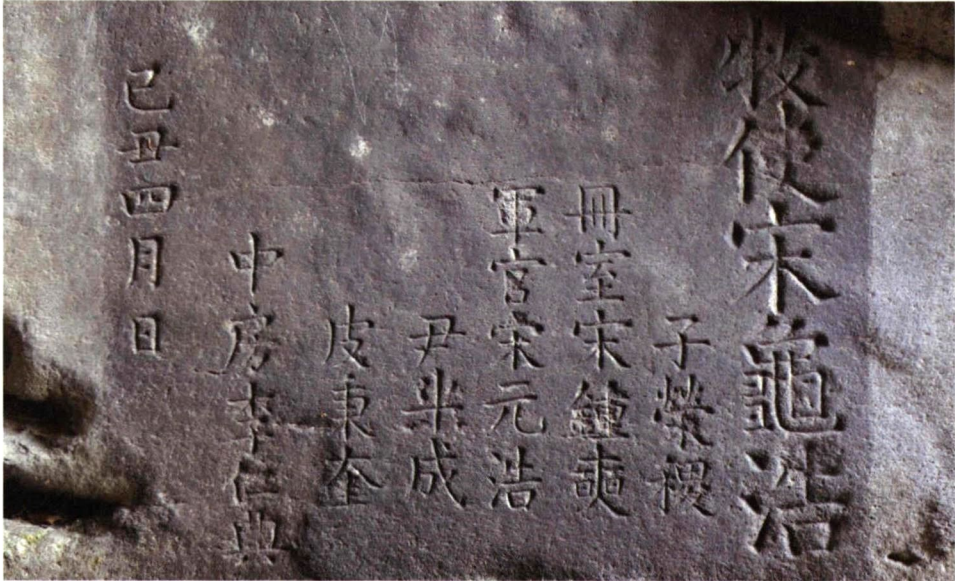 牧使宋龜浩
子榮稷
冊室宋鍾奭
軍官宋元浩
尹米成
皮東奎
中房李仁典
己丑四月日